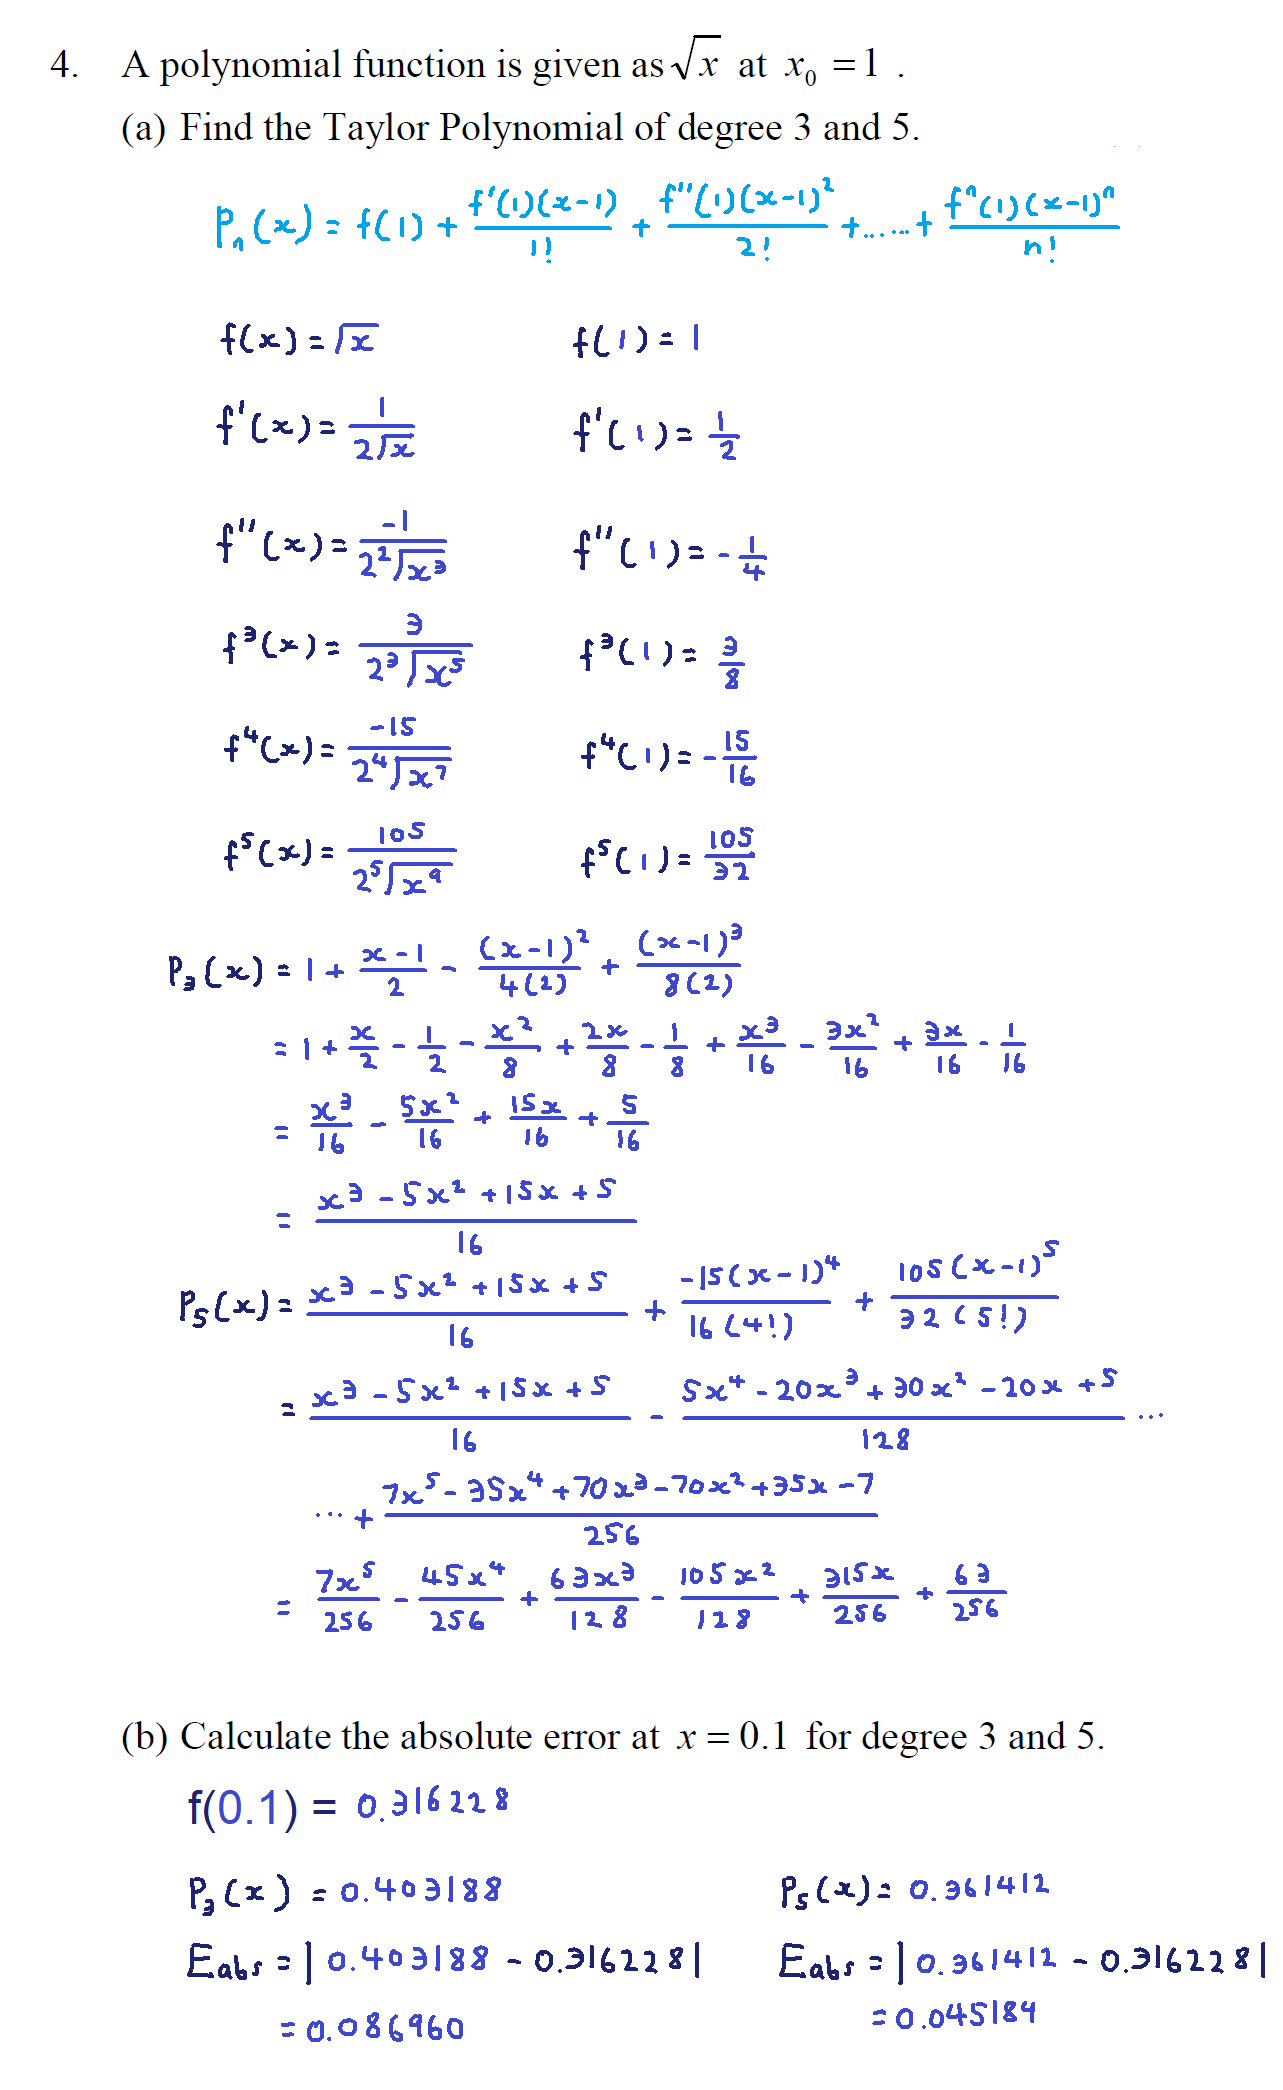 4. A polynomial function is given as √x at x₀ = 1 .
(a) Find the Taylor Polynomial of degree 3 and 5.
Pₙ(x) = f(1) + f'(1)(x-1)/1! + f''(1)(x-1)²/2! + ...... + fⁿ(1)(x-1)ⁿ/n!
f(x) = √x f(1) = 1
f'(x) = 1/(2√x) f'(1) = 1/2
f''(x) = -1/(2²√x³) f''(1) = -1/4
f³(x) = 3/(2³√x⁵) f³(1) = 3/8
f⁴(x) = -15/(2⁴√x⁷) f⁴(1) = -15/16
f⁵(x) = 105/(2⁵√x⁹) f⁵(1) = 105/32
P₃(x) = 1 + (x-1)/2 - (x-1)²/4(2) + (x-1)³/8(2)
= 1 + x/2 - 1/2 - x²/8 + 2x/8 - 1/8 + x³/16 - 3x²/16 + 3x/16 - 1/16
= x³/16 - 5x²/16 + 15x/16 + 5/16
= (x³ - 5x² + 15x + 5)/16
P₅(x) = (x³ - 5x² + 15x + 5)/16 + -15(x-1)⁴/16(4!) + 105(x-1)⁵/32(5!)
= (x³ - 5x² + 15x + 5)/16 - (5x⁴ - 20x³ + 30x² - 20x + 5)/128 ...
... + (7x⁵ - 35x⁴ + 70x³ - 70x² + 35x - 7)/256
= 7x⁵/256 - 45x⁴/256 + 63x³/128 - 105x²/128 + 315x/256 + 63/256
(b) Calculate the absolute error at x = 0.1 for degree 3 and 5.
f(0.1) = 0.316228
P₃(x) = 0.403188 P₅(x) = 0.361412
Eabs = |0.403188 - 0.316228| Eabs = |0.361412 - 0.316228|
= 0.086960 = 0.045184